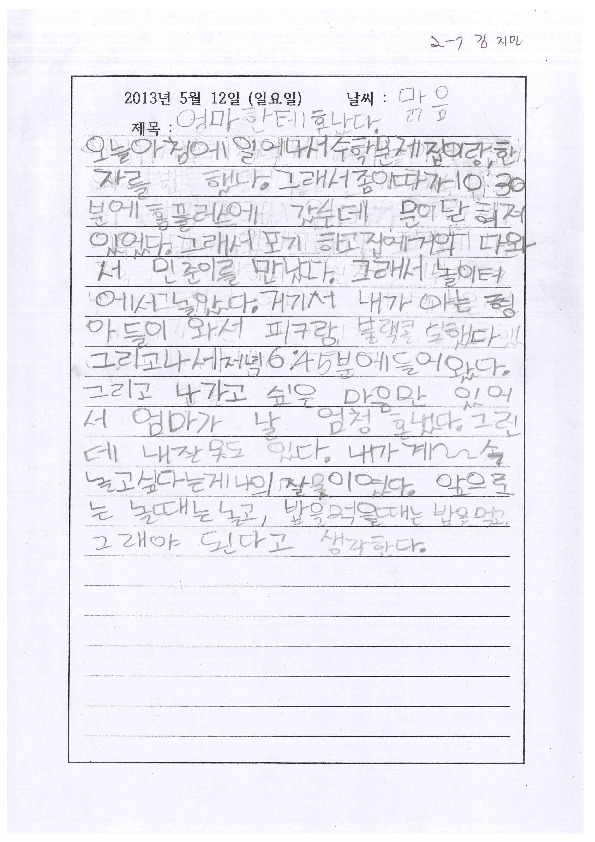 2-7 김지민
2013년 5월 12일 (일요일) 날씨 : 맑음
제목 : 엄마한테 혼났다.
오늘아침에 일어나서 수학문제집이랑, 한
자를 했다. 그래서 좀이따가 10:30
분에 홈플러스에 갔는데 문이 닫혀저
있었다. 그래서 포기 하고 집에 거의 다와
서 민준이를 만났다. 그래서 놀이터
에서 놀았다. 거기서 내가 아는 형
아들이 와서 피구랑, 블랙홀 도했다
그리고나세 저녁6:45분에들어왔다.
그리고 나가고 싶은 마음만 있어
서 엄마가 날 엄청 혼냈다. 그런
데 내잘못도 있다. 내가 계~~속
놀고싶다는게 나의 잘못이였다. 앞으로
는 놀때는 놀고, 밥을먹을때는 밥을먹고,
그래야 된다고 생각한다.